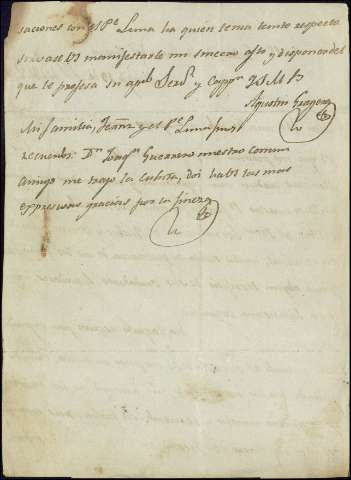 saciones con el Pe. Luna ha quien tema tanto respecto
sirvase Vs manifestarle mi sincero afto y disponer del
que le profesa su apdo. Serdr. y Cappn. Q S M B
Agustin
Mi familia, y el Pe. Luna
recuerdos. Dn. Joaqn. Guerrero nuestro comun
amigo me trajo la cubeta, doi ha Vs las mas
expresivas gracias por la fineza